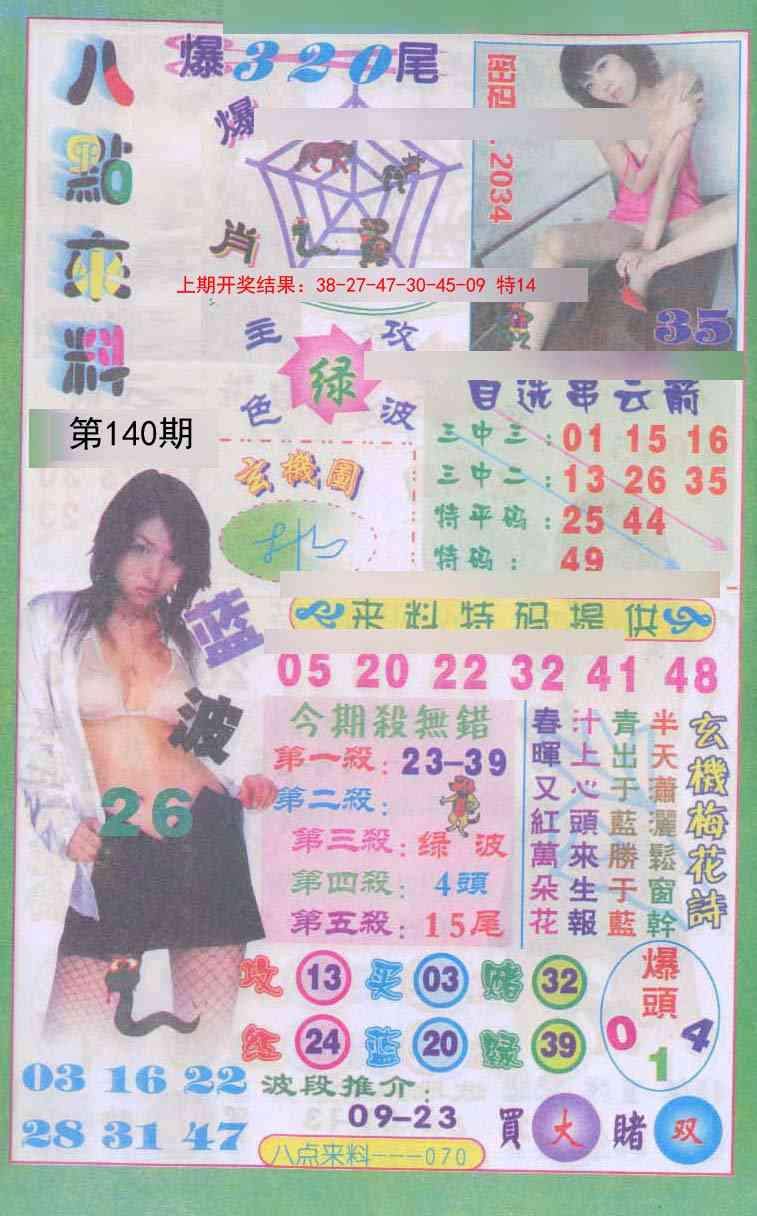 八點來料
爆320尾
爆肖
密码:.2034
35
上期开奖结果：38-27-47-30-45-09 特14
主攻
绿
色波
第140期
自选串云箭
三中三：01 15 16
三中二：13 26 35
特平码：25 44
特码：49
玄機圖
来料特码提供
05 20 22 32 41 48
蓝波
26
今期殺無錯
第一殺：23-39
第二殺：
第三殺：绿波
第四殺：4頭
第五殺：15尾
玄機梅花詩
半天蕭灑鬆窗幹
青出于藍勝于藍
汁上心頭來生報
春暉又紅萬朵花
攻 13 买 03 赌 32
红 24 蓝 20 绿 39
爆頭
0 1 4
03 16 22
28 31 47
波段推介：
09-23
買大賭双
八点来料---070